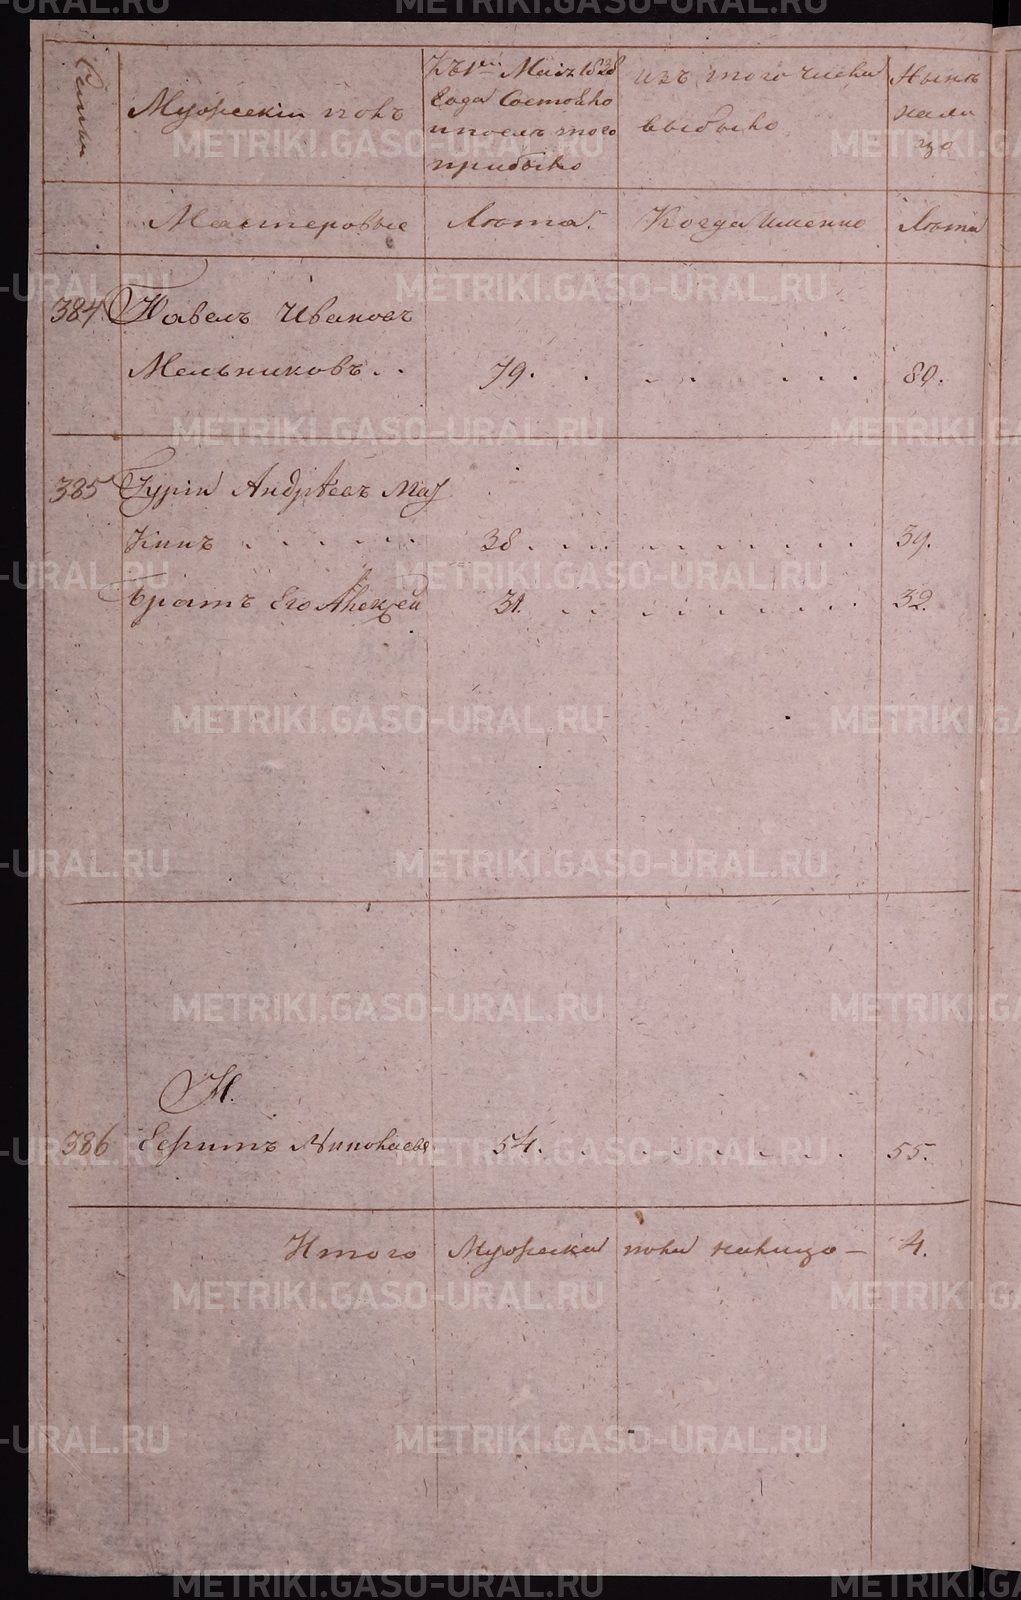 Семьи
Мужескій полъ
Къ 1 Маія 1828
Года Состояло
и послѣ того
прибыло
изъ того числа
выбыло
Нынѣ
нали
цо
Мастеровые
Лѣта
Когда Именно
Лѣта
384 Павелъ Ивановъ
Мельниковъ . . 79. . . . . . . 80.
385 Гурій Андрѣевъ Маз
Кинъ . . . . . . 38. . . . . . . . . . . 39.
Братъ Его Алексей 31. . . . . . . . . . . 32.
Н.
386 Николаевъ 54. . . . . . . . . 55.
Итого Мужеска пола налицо — 4.
METRIKI.GASO-URAL.RU